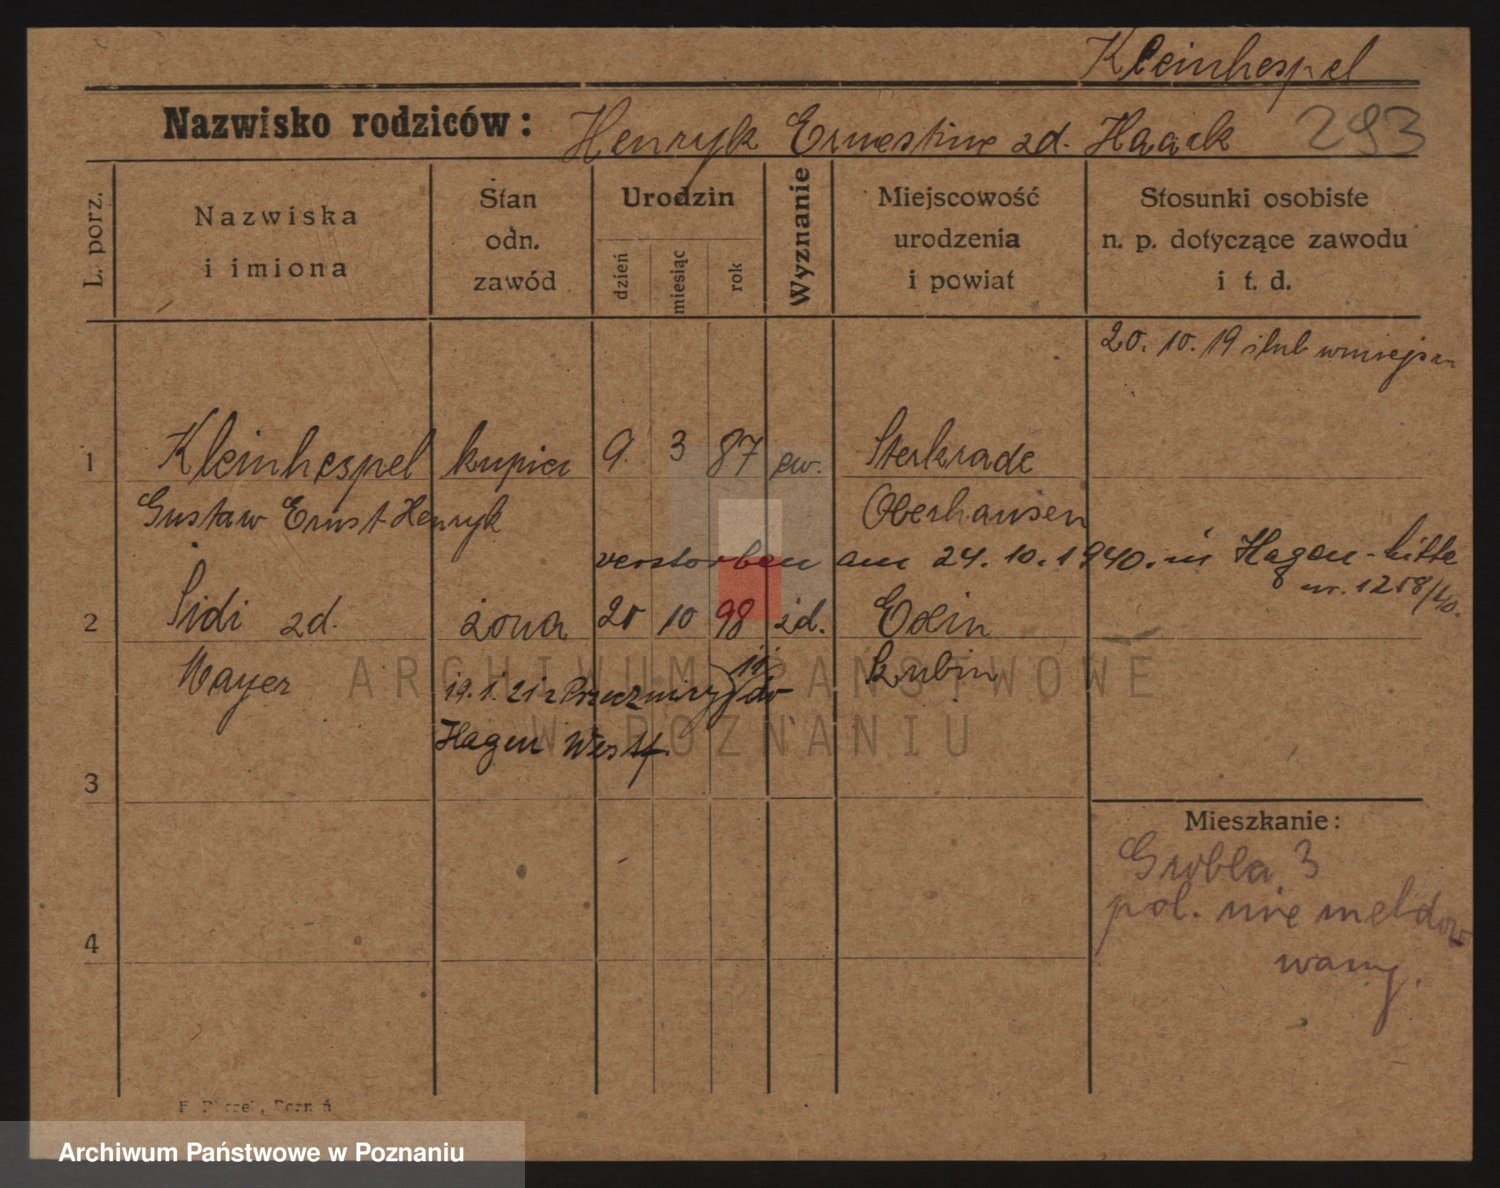 Kleinhespel
Nazwisko rodziców: Henryk Ernestine zd. Haack 293
L. porz.
Nazwiska
i imiona
Stan
odn.
zawód
Urodzin
dzień
miesiąc
rok
Wyznanie
Miejscowość
urodzenia
i powiat
Stosunki osobiste
n. p. dotyczące zawodu
i t. d.
20. 10. 19 ślub w miejscu
1 Kleinhespel kupiec 9. 3 87 ew. Sterkrade
Gustaw Ernst Henryk Oberhausen
verstorben am 24. 10. 1940. in Hagen-
nr. 1258/40.
2 Sidi zd. żona 20 10 98 żd.
Mayer Lubin
19. 1. 21 z
Hagen Westf.
3
Mieszkanie:
Grobla 3
pol. nie meldo
wany.
4
ARCHIWUM PAŃSTWOWE
W POZNANIU
Archiwum Państwowe w Poznaniu